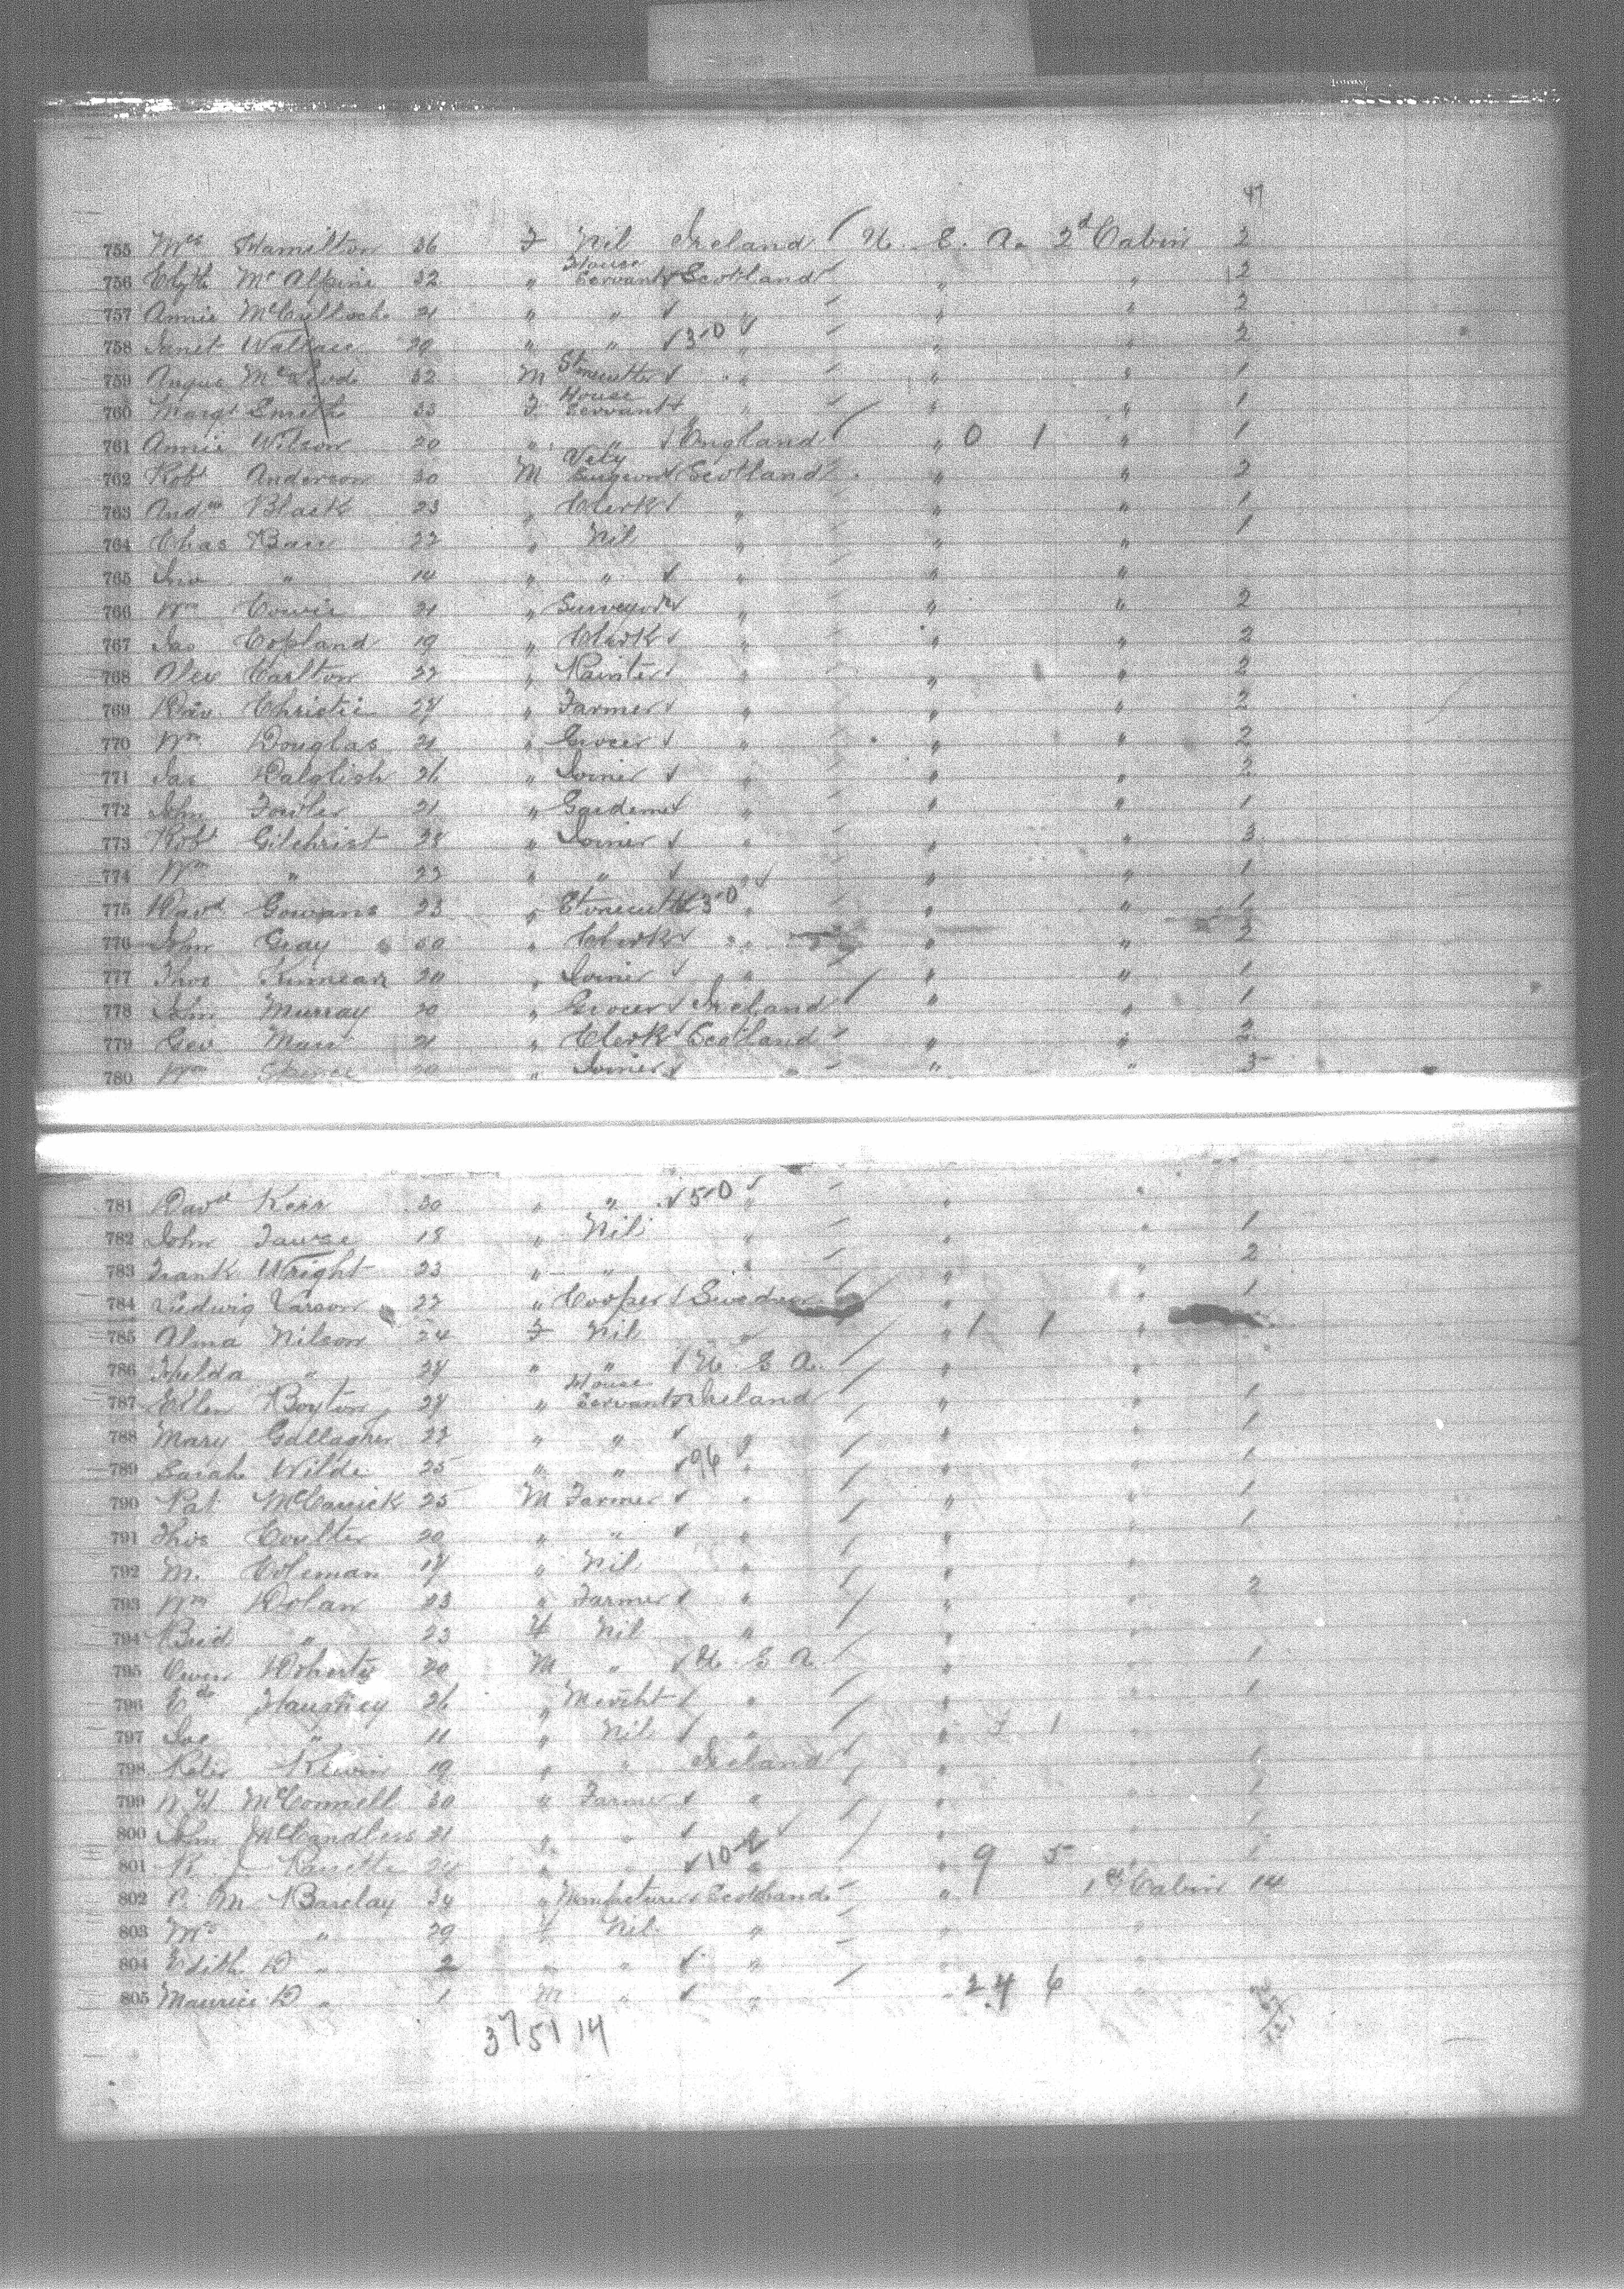 47
755 Mrs Hamilton 36 F Nil Ireland U. S. A. 2d Cabin 2
756 McAlpine 32 " House Servant Scotland " " 2
757 Annie McCulloch 21 " " " " " 2
758 Janet Wallace 20 " " 30 " " " 2
759 Angus McLeod 32 M Stonecutter " " " 1
760 Margt Smith 33 F House Servant " " " 1
761 Annie Wilson 20 " " England " 0 1 " 1
762 Robt Anderson 30 M Vety Surgeon Scotland " " 2
763 Andw Black 23 " Clerk " " " 1
764 Chas Barr 22 " Nil " " " 1
765 Jno " 14 " " " " "
766 Wm Cowie 21 " Surveyor " " " 2
767 Jas Copland 19 " Clerk " " " 2
768 Alex Carlton 32 " Painter " " " 2
769 Christie 27 " Farmer " " " 2
770 Wm Douglas 21 " Grocer " " " 2
771 Jas Dalglish 26 " Joiner " " " 2
772 John Fowler 21 " Gardener " " " 1
773 Robt Gilchrist 28 " Joiner " " " 3
774 Wm " 22 " " " " " 1
775 Davd Gowans 23 " Stonecutter 30 " " " 1
776 John Gray 50 " Clerk " " " 2
777 Thos Kinnear 20 " Joiner " " " 1
778 John Murray 20 " Grocer Ireland " " 1
779 Geo Marr 21 " Clerk Scotland " " 2
780 Wm " Joiner " " " 3
781 Davd Kerr 30 " " 50 " " "
782 John Fawse 18 " Nil " " " 1
783 Frank Wright 23 " " " " " 2
784 Ludwig Larson 22 " Cooper Sweden " " 1
785 Alma Nilson 24 F Nil " " 1 1 "
786 Hulda " 24 " " U. S. A. " "
787 Ellen Boyton 27 " House Servant Ireland " " 1
788 Mary Gallagher 22 " " " " " 1
789 Sarah Wilde 25 " " 96 " " " 1
790 Pat McCarrick 25 M Farmer " " " 1
791 Thos Coulter 20 " " " " " 1
792 M. Coleman 17 " Nil " " "
793 Wm Dolan 23 " Farmer " " " 2
794 " 23 F Nil " " "
795 Owen Doherty 20 M " U. S. A. " " 1
796 Edw 26 " Mercht " " " 1
797 " 11 " Nil " " 1 "
798 Peter 19 " " Ireland " " 1
799 McConnell 30 " Farmer " " " 1
800 John McCandless 21 " " " " " 1
801 R. J. 24 " " 10 " " 9 5 1
802 Barclay 34 " Manufacturer Scotland " 1st Cabin 14
803 Mrs " 29 F Nil " " "
804 Edith D " 2 " " " " "
805 Maurice D " 1 M " " " 24 6 "
37 51 14